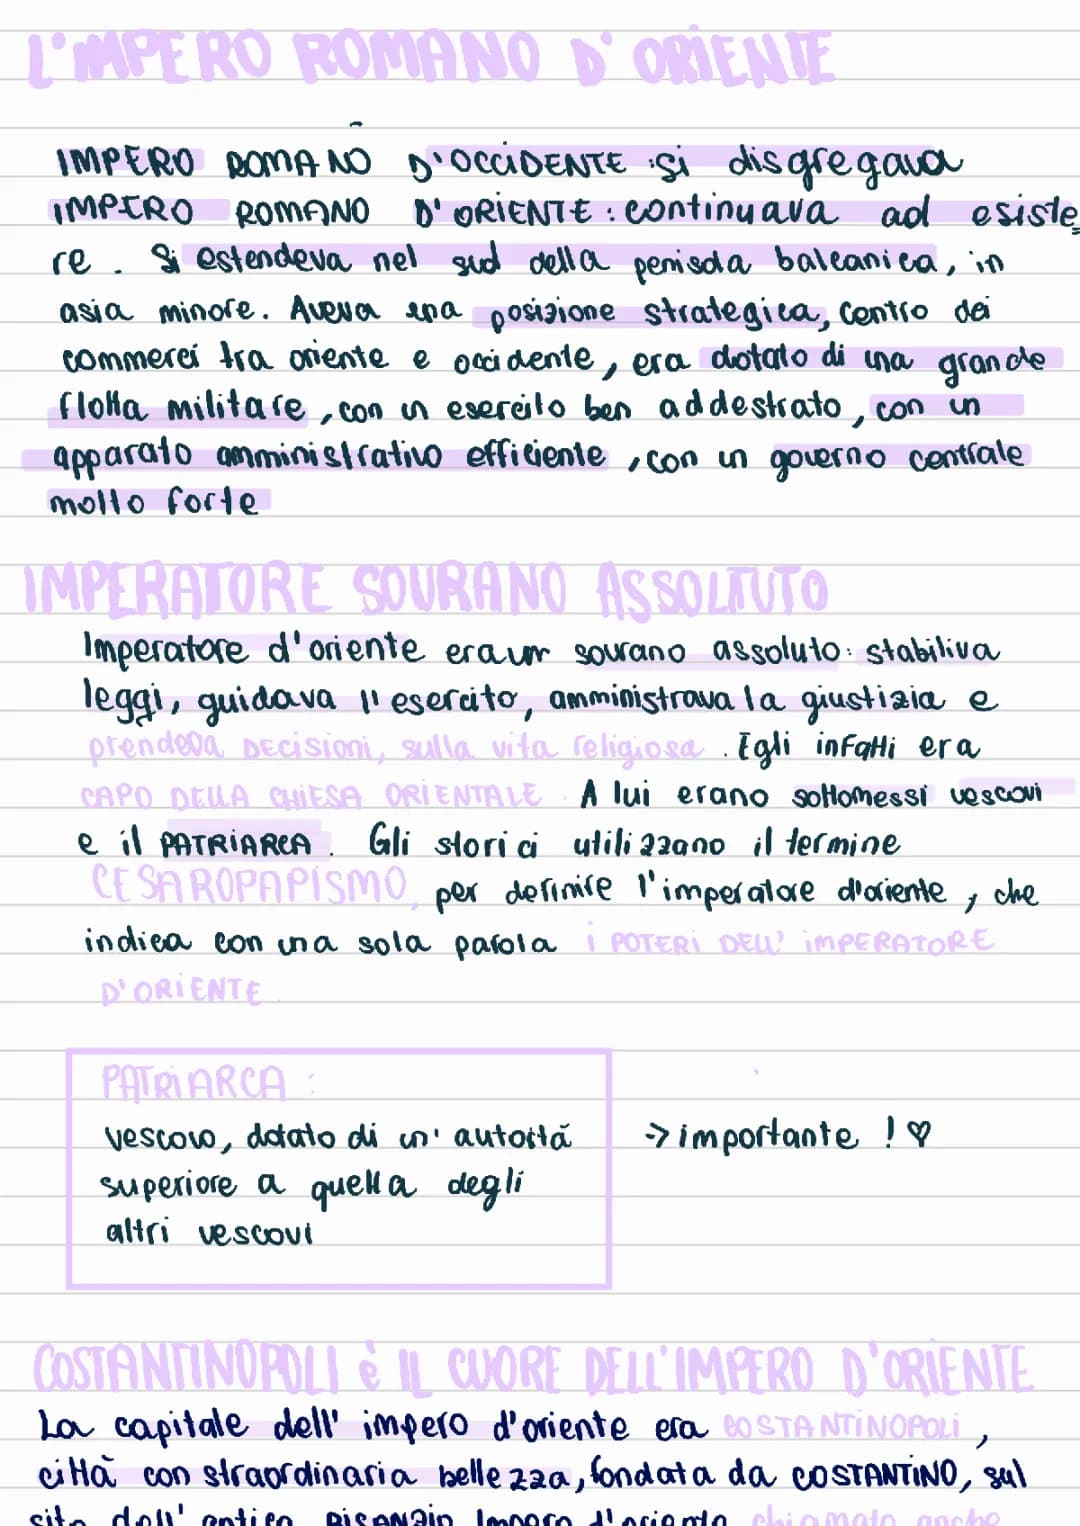 L'IMPERO ROMANO D'ORIENTE
IMPERO ROMANO D'OCCIDENTE si disgregava
IMPERO ROMANO D'ORIENTE: continuava ad esiste
re. Si estendeva nel sud della penisola balcanica, in
asia minore. Aveva una posizione strategica, centro dei
commerci tra oriente e occidente, era dotato di una grande
flotta militare, con un esercito ben addestrato, con un
apparato amministrativo efficiente, con un governo centrale
molto forte
IMPERATORE SOVRANO ASSOLUTO
Imperatore d'oriente era un sovrano assoluto: stabiliva
leggi, guidava l'esercito, amministrava la giustizia e
prendeva DECISIONI, sulla vita religiosa. Egli infatti era
CAPO DELLA CHIESA ORIENTALE. A lui erano sottomessi vescovi
e il PATRIARCA. Gli storici utilizzano il termine
CESAROPAPISMO, per definire l'imperatore d'oriente, che
indica con una sola parola i POTERI DELL' IMPERATORE
D'ORIENTE.
PATRIARCA:
vescovo, dotato di un' autorità
superiore a quella degli
altri vescovi
-> importante ! ♡
COSTANTINOPOLI è IL CUORE DELL'IMPERO D'ORIENTE
La capitale dell' impero d'oriente era COSTANTINOPOLI,
città con straordinaria bellezza, fondata da COSTANTINO, sul
sito dell' antica BISANZIO. Impero d'oriente chiamato anche